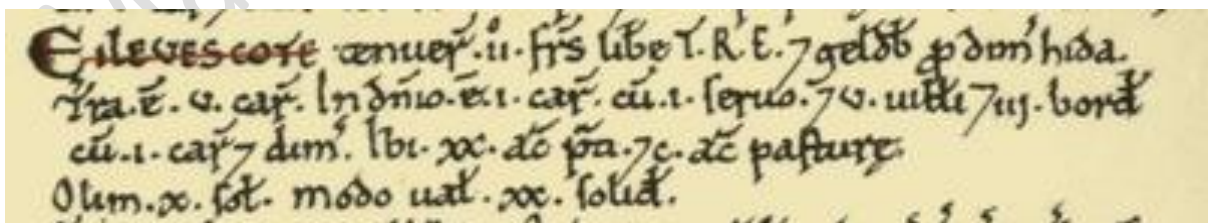 Eileuescote tenuer̃.ii. fr̃s libe T.R.E. ⁊ geldb̃ ꝓ dim̃ hida.
Tr̃a.ẽ.v. car̃. In dñio.ẽ.i. car̃. cũ.i. seruo. ⁊ v. uilli ⁊ iij. bord
cũ.i. car̃ ⁊ dim̃. Ibi. xx. ac̃ p̃a. ⁊ c. ac̃ pasturę.
Olim. x. sol. modo ual. xx. solid.